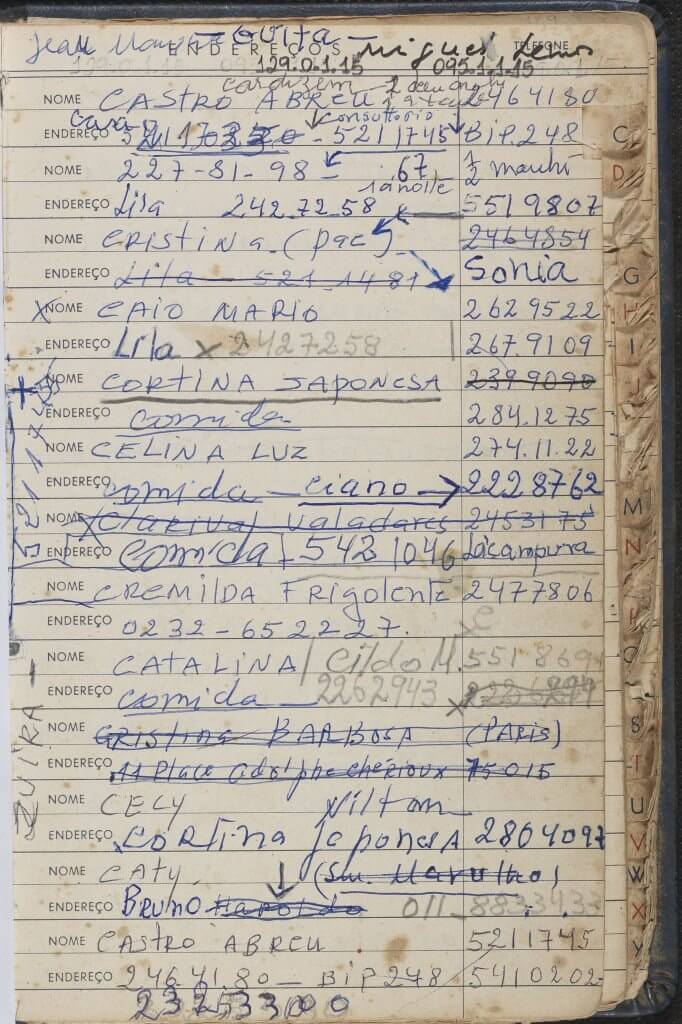 Jean — GUITA — Miguel
ENDEREÇOS TELEFONE
129.0.1.15 095.1.1.15
cardizem
NOME CASTRO ABREU 2464180
consultorio
ENDEREÇO 5211745 BiP.248
NOME 227-81-98 67
1 a noite
ENDEREÇO Lila 242.72.58 5519807
NOME CRISTINA (PAC) 2464854
ENDEREÇO Lila 521-1481 Sonia
NOME CAIO MARIO 2629522
ENDEREÇO Lila x 2427258 267.9109
NOME CORTINA JAPONESA 2399090
ENDEREÇO comida 284.1275
NOME CELINA LUZ 274.11.22
ENDEREÇO comida — ciano 2228762
NOME Clarival Valadares 2453175
ENDEREÇO Comida 5421046
NOME CREMILDA Frigolente 2477806
ENDEREÇO 0232-6522227.
NOME CATALINA / Cildo M. 551869
ENDEREÇO comida — 2262943
NOME CRISTINA BARBOSA (PARIS)
ENDEREÇO 11 Place Adolphe cherioux 75015
NOME CECY Nilton
ENDEREÇO CORTINA JapONESA 2804097
NOME CATY
ENDEREÇO BRUNO Haroldo 011-8833433
NOME CASTRO ABREU 5211745
ENDEREÇO 24641.80 — BiP 248 5410202
ZUIRA
C
D
G
H
I
J
M
N
S
T
U
V
W
X
Y